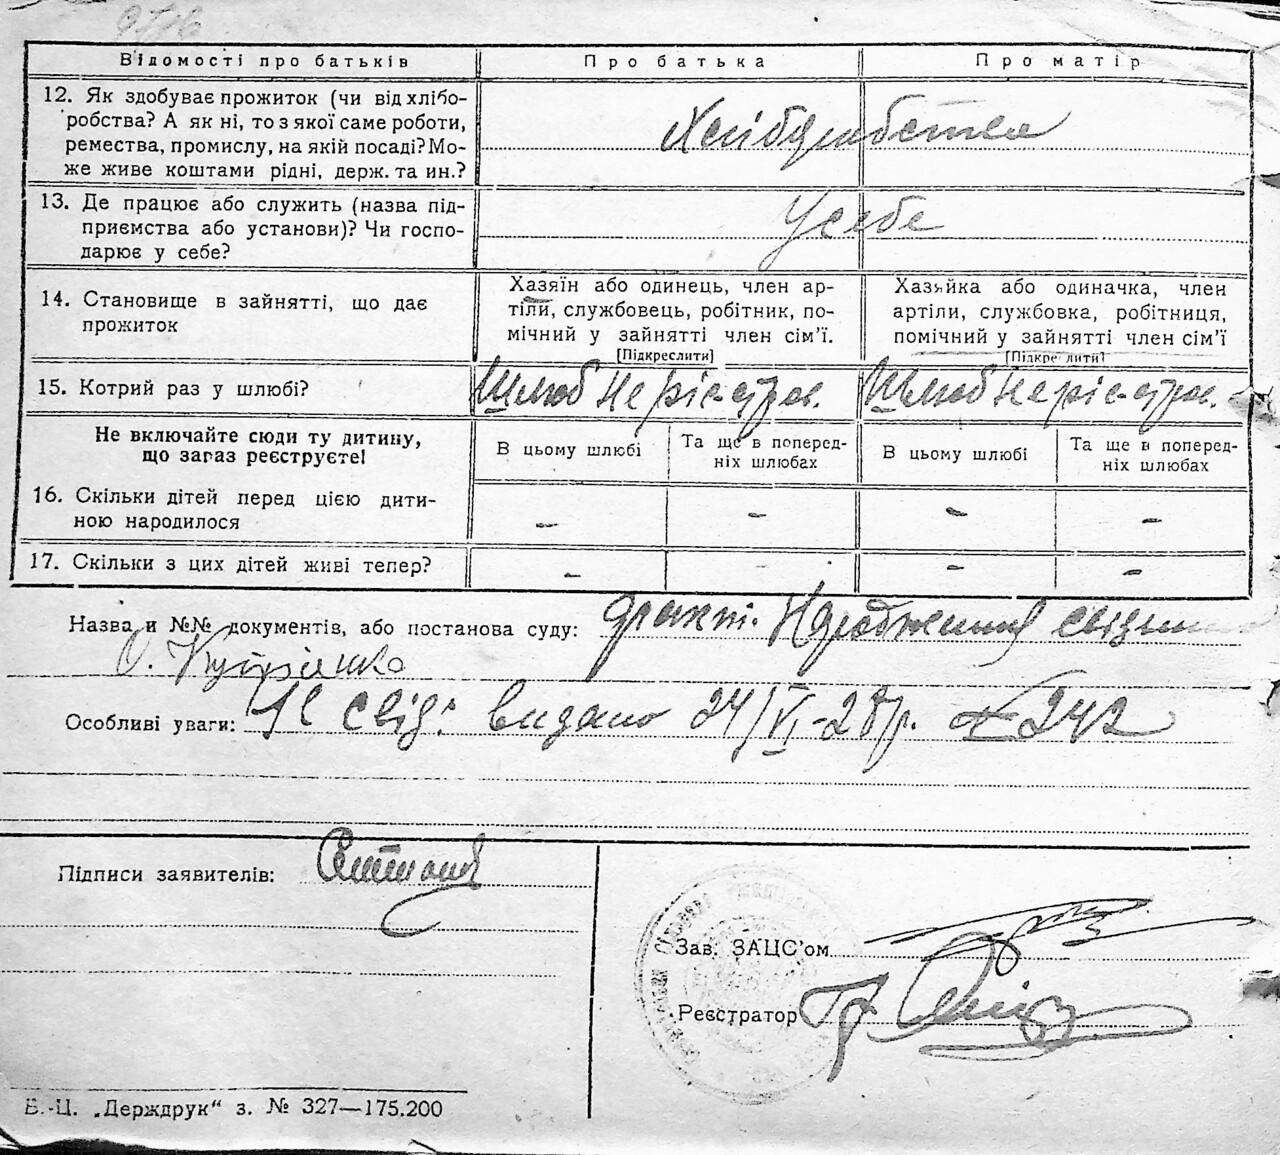 Відомості про батьків
Про батька
Про матір
12. Як здобуває прожиток (чи від хлібо-
робства? А як ні, то з якої саме роботи,
ремества, промислу, на якій посаді? Мо-
же живе коштами рідні, держ. та ин.?
Хліборобство
13. Де працює або служить (назва під-
приємства або установи)? Чи госпо-
дарює у себе?
У себе
14. Становище в зайнятті, що дає
прожиток
Хазяїн або одинець, член ар-
тіли, службовець, робітник, по-
мічний у зайнятті член сім'ї.
[Підкреслити]
Хазяйка або одиначка, член
артіли, службовка, робітниця,
помічний у зайнятті член сім'ї
[Підкреслити]
15. Котрий раз у шлюбі?
Шлюб не ріє-стров.
Шлюб не ріє-стров.
Не включайте сюди ту дитину,
що зараз реєструєте!
В цьому шлюбі
Та ще в поперед-
ніх шлюбах
В цьому шлюбі
Та ще в поперед-
ніх шлюбах
16. Скільки дітей перед цією дити-
ною народилося
– – – –
17. Скільки з цих дітей живі тепер?
– – – –
Назва и №№ документів, або постанова суду: факт. Народження
О.
Особливі уваги: свід: видано 24/VI-28р. № 242
Підписи заявителів:
Зав. ЗАЦС'ом
Реєстратор
В.-Ц. „Держдрук" з. № 327—175.200